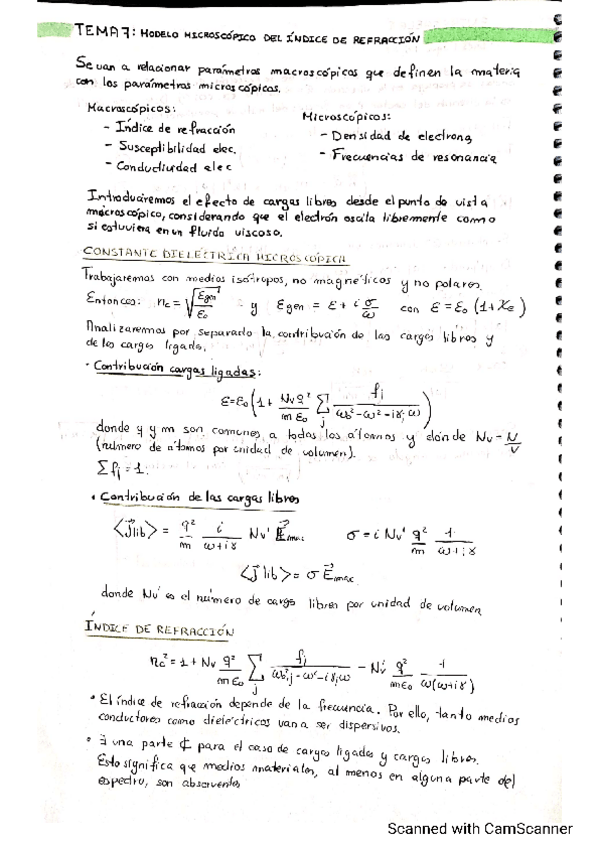 TEMA 7: MODELO MICROSCÓPICO DEL ÍNDICE DE REFRACCIÓN
Se van a relacionar parámetros macroscópicos que definen la materia
con los parámetros microscópicos.
Macroscópicos:
- Índice de refracción
- Susceptibilidad elec.
- Conductividad elec
Microscópicos:
- Densidad de electrones
- Frecuencias de resonancia
Introduciremos el efecto de cargas libres desde el punto de vista
macroscópico, considerando que el electrón oscila libremente como
si estuviera en un fluido viscoso.
CONSTANTE DIELÉCTRICA MICROSCÓPICA
Trabajaremos con medios isótropos, no magnéticos y no polares.
Entonces: nc = √(εgen/ε₀) y εgen = ε + i σ/ω con ε = ε₀ (1+χe)
Analizaremos por separado la contribución de las cargas libres y
de las cargas ligadas.
· Contribución cargas ligadas:
ε = ε₀ (1 + Nv q²/(m ε₀) Σj fj/(ω₀² - ω² - iγjω))
donde q y m son comunes a todos los átomos y donde Nv = N/V
(número de átomos por unidad de volumen).
Σ fj = 1.
• Contribución de las cargas libres
⟨j⃗ lib⟩ = q²/m i/(ω+iγ) Nv' E⃗mac σ = i Nv' q²/m 1/(ω+iγ)
⟨j⃗ lib⟩ = σ E⃗mac
donde Nv' es el número de carga libres por unidad de volumen
ÍNDICE DE REFRACCIÓN
nc² = 1 + Nv q²/(mε₀) Σj fj/(ω₀²,j - ω² - iγjω) - Nv' q²/(mε₀) 1/(ω(ω+iγ))
• El índice de refracción depende de la frecuencia. Por ello, tanto medios
conductores como dieléctricos van a ser dispersivos.
• ∃ una parte ℂ para el caso de cargas ligadas y cargas libres.
Esto significa que medios materiales, al menos en alguna parte del
espectro, son absorbentes
Scanned with CamScanner